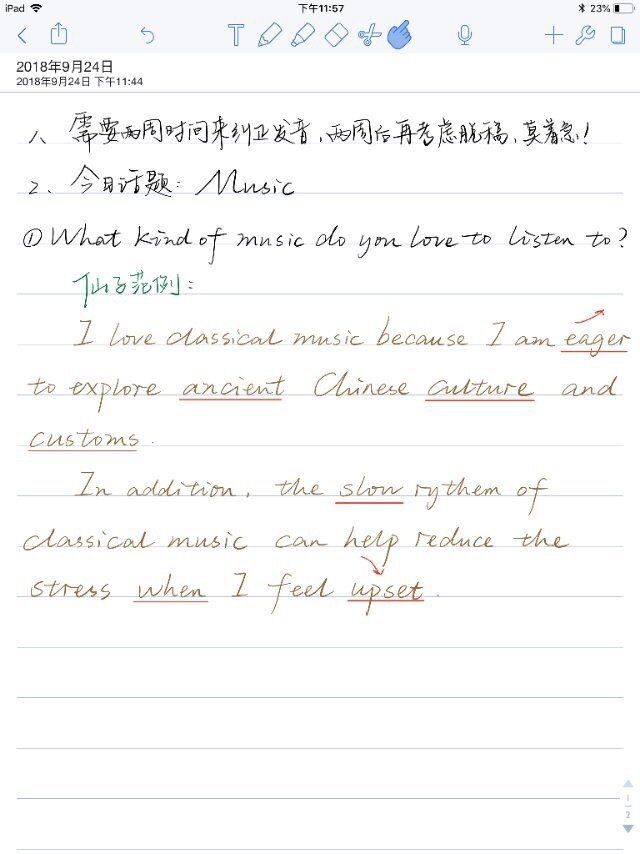 iPad 下午11:57 23%
T
2018年9月24日
2018年9月24日 下午11:44
1、需要两周时间来纠正发音，两周后再考虑脱稿，莫着急！
2、今日话题：Music
① What kind of music do you love to listen to?
仙子范例：
I love classical music because I am eager
to explore ancient Chinese culture and
customs.
In addition, the slow rythem of
classical music can help reduce the
stress when I feel upset.
1
2